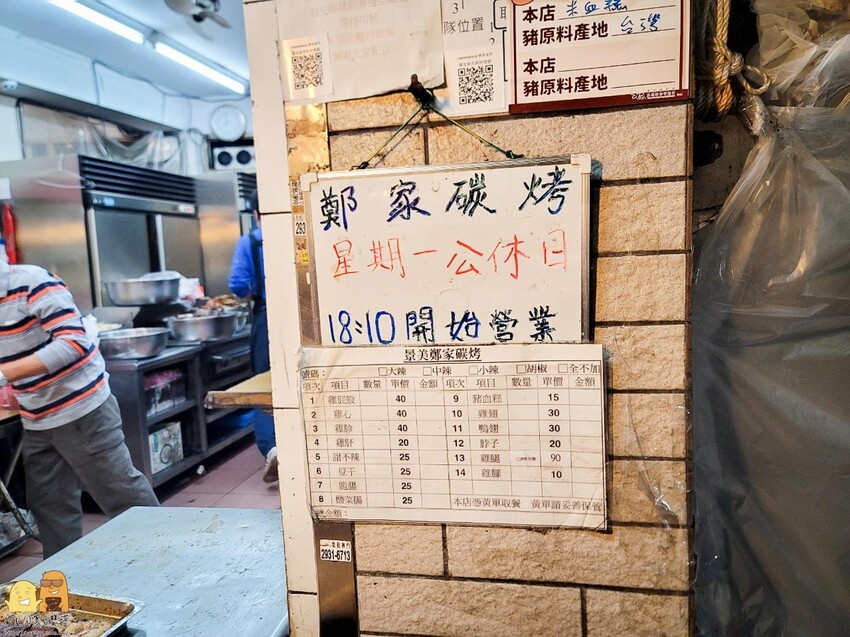 31
隊位置
2
本店 米血糕
豬原料產地 台灣
本店
豬原料產地
鄭家碳烤
星期一公休日
18:10開始營業
293
景美鄭家碳烤
號碼： □大辣 □中辣 □小辣 □胡椒 □全不加
項次 項目 數量 單價 金額 項次 項目 數量 單價 金額
1 雞屁股 40 9 豬血糕 15
2 雞心 40 10 雞翅 30
3 雞胗 40 11 鴨翅 30
4 雞肝 20 12 脖子 20
5 甜不辣 25 13 雞腿 90
6 豆干 25 14 雞腳 10
7 脆腸 25
8 酸菜腸 25 本店憑黃單取餐 黃單請妥善保管
總金額：
2931-6713